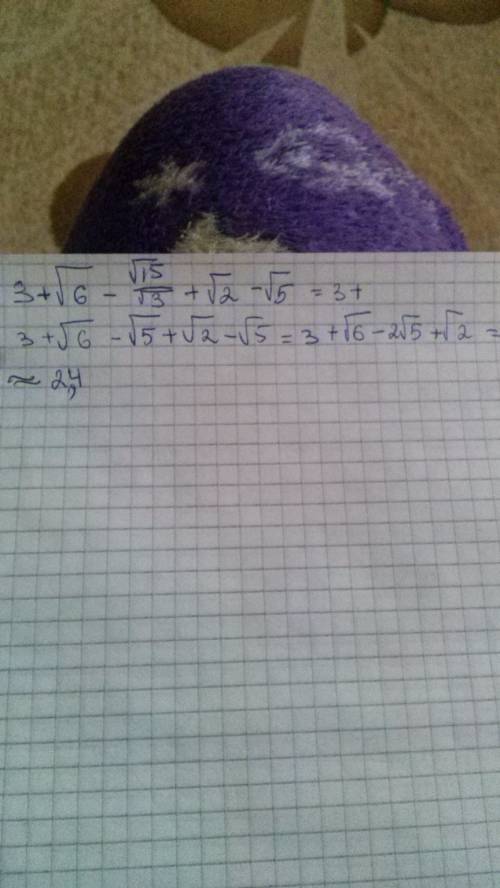 3+√6 - √15/√3 + √2 - √5 = 3+
3+√6 - √5+√2 - √5 = 3+√6-2√5+√2 =
≈ 2,4